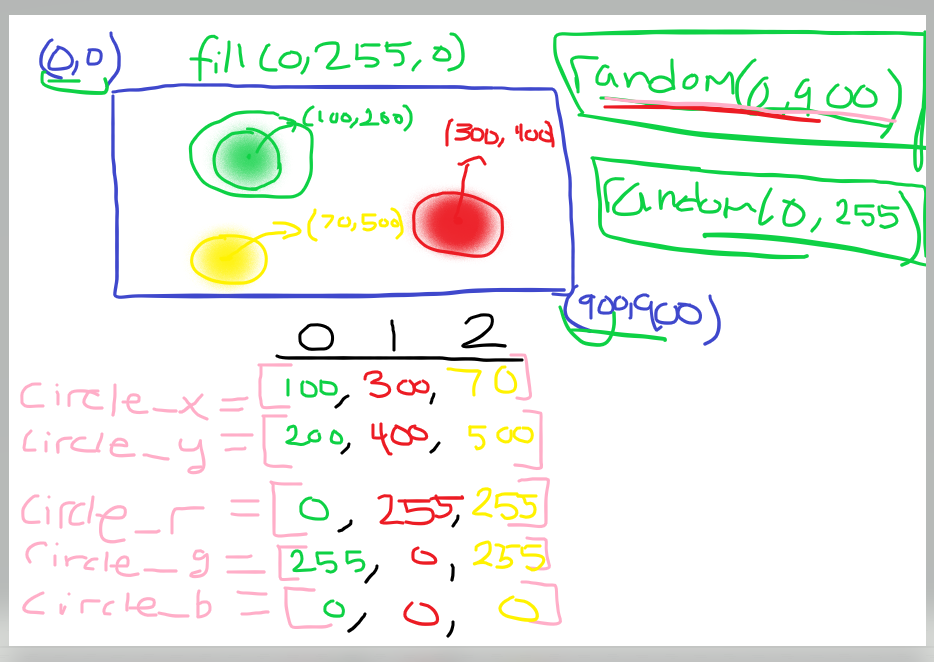 (0,0)
fill(0,255,0)
random(0,900)
(100,200)
(300,400)
random(0,255)
(70,500)
(900,900)
0 1 2
Circle_x = [100, 300, 70]
Circle_y = [200, 400, 500]
Circle_r = [0, 255, 255]
Circle_g = [255, 0, 255]
Circle_b = [0, 0, 0]